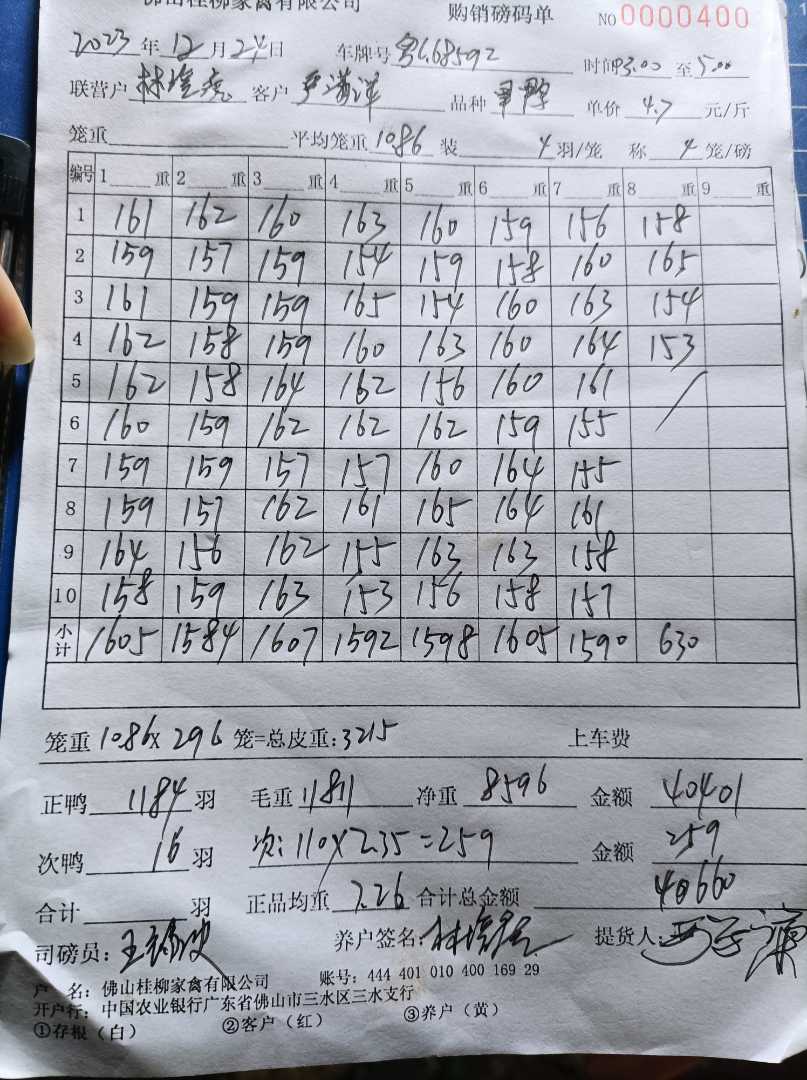 佛山桂柳家禽有限公司 购销磅码单 NO 0000400
2023 年 12 月 24 日 车牌号 粤L68592 时间 3.00 至 5.00
联营户 客户 品种 单价 4.7 元/斤
笼重 平均笼重 10.86 装 4 羽/笼 称 4 笼/磅
编号 1 重 2 重 3 重 4 重 5 重 6 重 7 重 8 重 9 重
1 161 162 160 163 160 159 156 158
2 159 157 159 154 159 158 160 165
3 161 159 159 165 154 160 163 154
4 162 158 159 160 163 160 164 153
5 162 158 164 162 156 160 161
6 160 159 162 162 162 159 155
7 159 159 157 157 160 164 155
8 159 157 162 161 165 164 161
9 164 156 162 155 163 163 158
10 158 159 163 153 156 158 157
小计 1605 1584 1607 1592 1598 1605 1590 630
笼重 10.86 X 296 笼=总皮重: 3215 上车费
正鸭 1184 羽 毛重 11811 净重 8596 金额 40401
次鸭 16 羽 次: 110 X 2.35 = 259 金额 259
合计 羽 正品均重 7.26 合计总金额 40660
司磅员: 养户签名: 提货人:
户 名: 佛山桂柳家禽有限公司 账号: 444 401 010 400 169 29
开户行: 中国农业银行广东省佛山市三水区三水支行
①存根(白) ②客户(红) ③养户(黄)